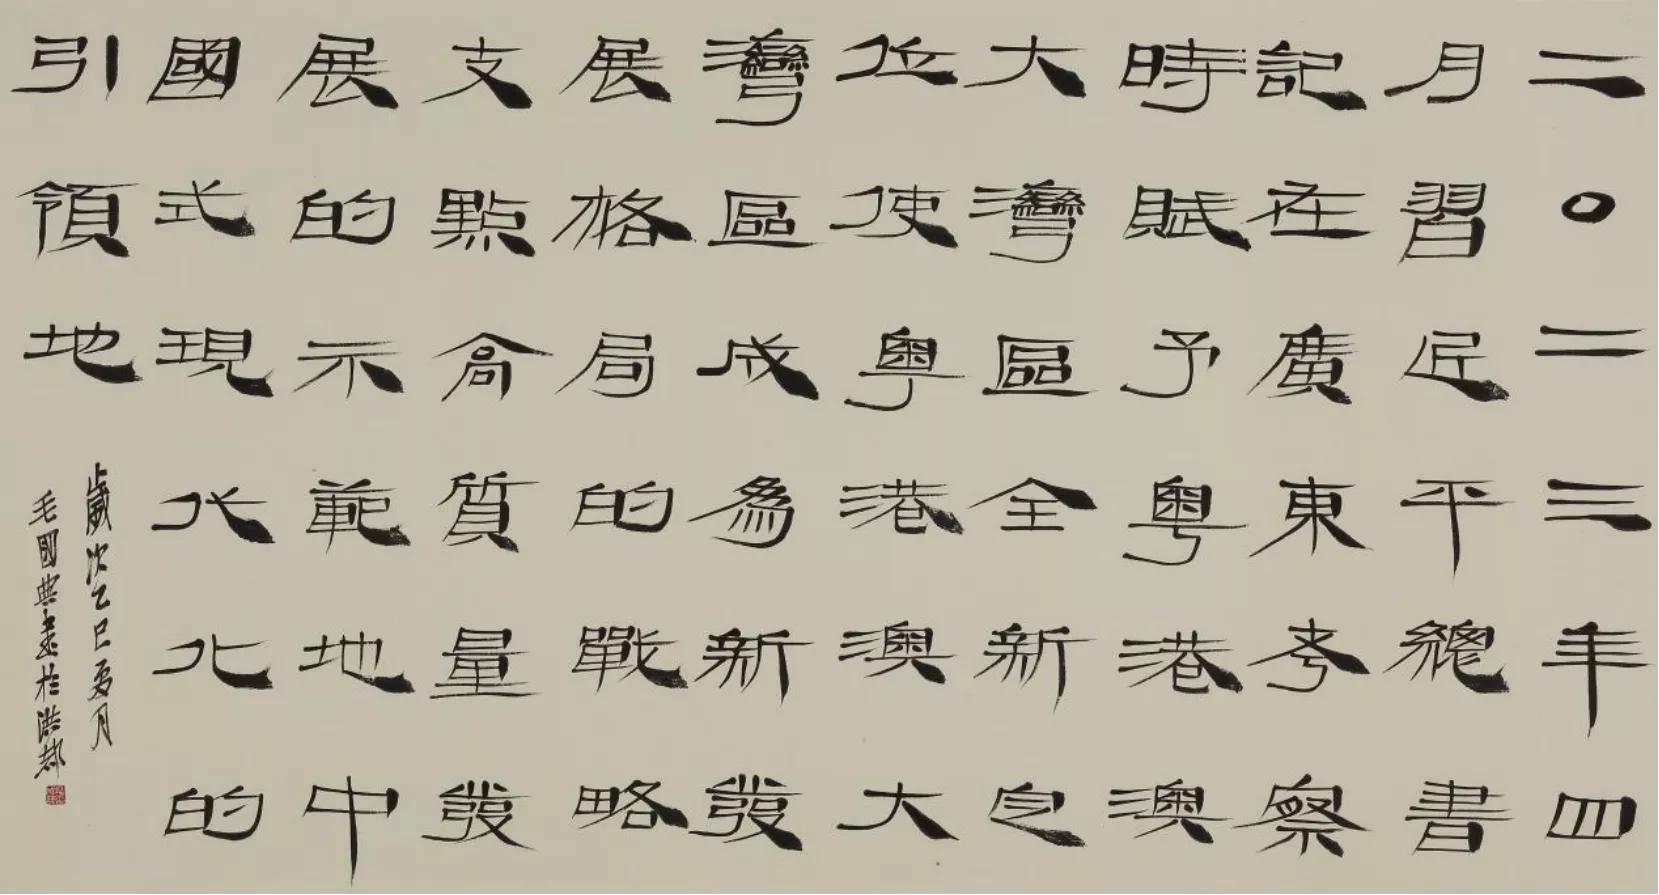 二〇二三年四
月習近平總書
記在廣東考察
時賦予粵港澳
大灣區全新定
位使粵港澳大
灣區成為新發
展格局的戰略
支點高質量發
展的示範地中
國式現代化的
引領地
歲次乙巳夏月
毛國典書於洪都